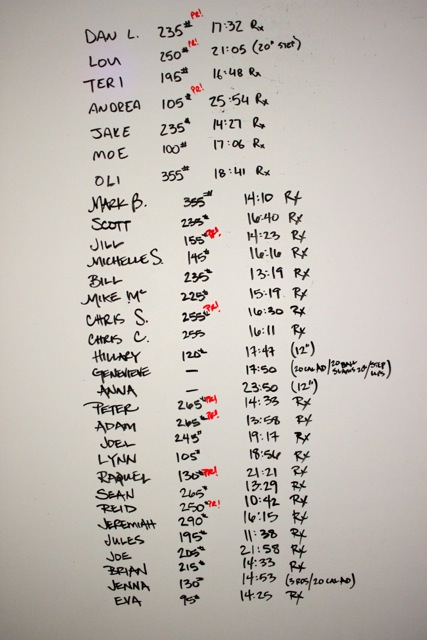 DAN L. 235# PR! 17:32 Rx
LOU 250# PR! 21:05 (20" STEP)
TERI 195# 16:48 Rx
ANDREA 105# PR! 25:54 Rx
JAKE 235# 14:27 Rx
MOE 100# 17:06 Rx
OLI 355# 18:41 Rx
MARK B. 355# 14:10 Rx
SCOTT 235# 16:40 Rx
JILL 155# PR! 14:23 Rx
MICHELLE S. 145# 16:16 Rx
BILL 235# 13:19 Rx
MIKE Mc 225# 15:19 Rx
CHRIS S. 255# PR! 16:30 Rx
CHRIS C. 255 16:11 Rx
HILLARY 120# 17:47 (12")
GENEVIEVE — 17:50 (20 CAL AD/20 BALL SLAMS /STEP UPS)
ANNA — 23:50 (12")
PETER 265# PR! 14:33 Rx
ADAM 265# PR! 13:58 Rx
JOEL 245# 19:17 Rx
LYNN 105# 18:56 Rx
RAQUEL 130# PR! 21:21 Rx
SEAN 265# 13:29 Rx
REID 250# PR! 10:42 Rx
JEREMIAH 290# 16:15 Rx
JULES 195# 11:38 Rx
JOE 205# 21:58 Rx
BRIAN 215# 14:33 Rx
JENNA 130# 14:53 (3 RDS/20 CAL AD)
EVA 95# 14:25 Rx